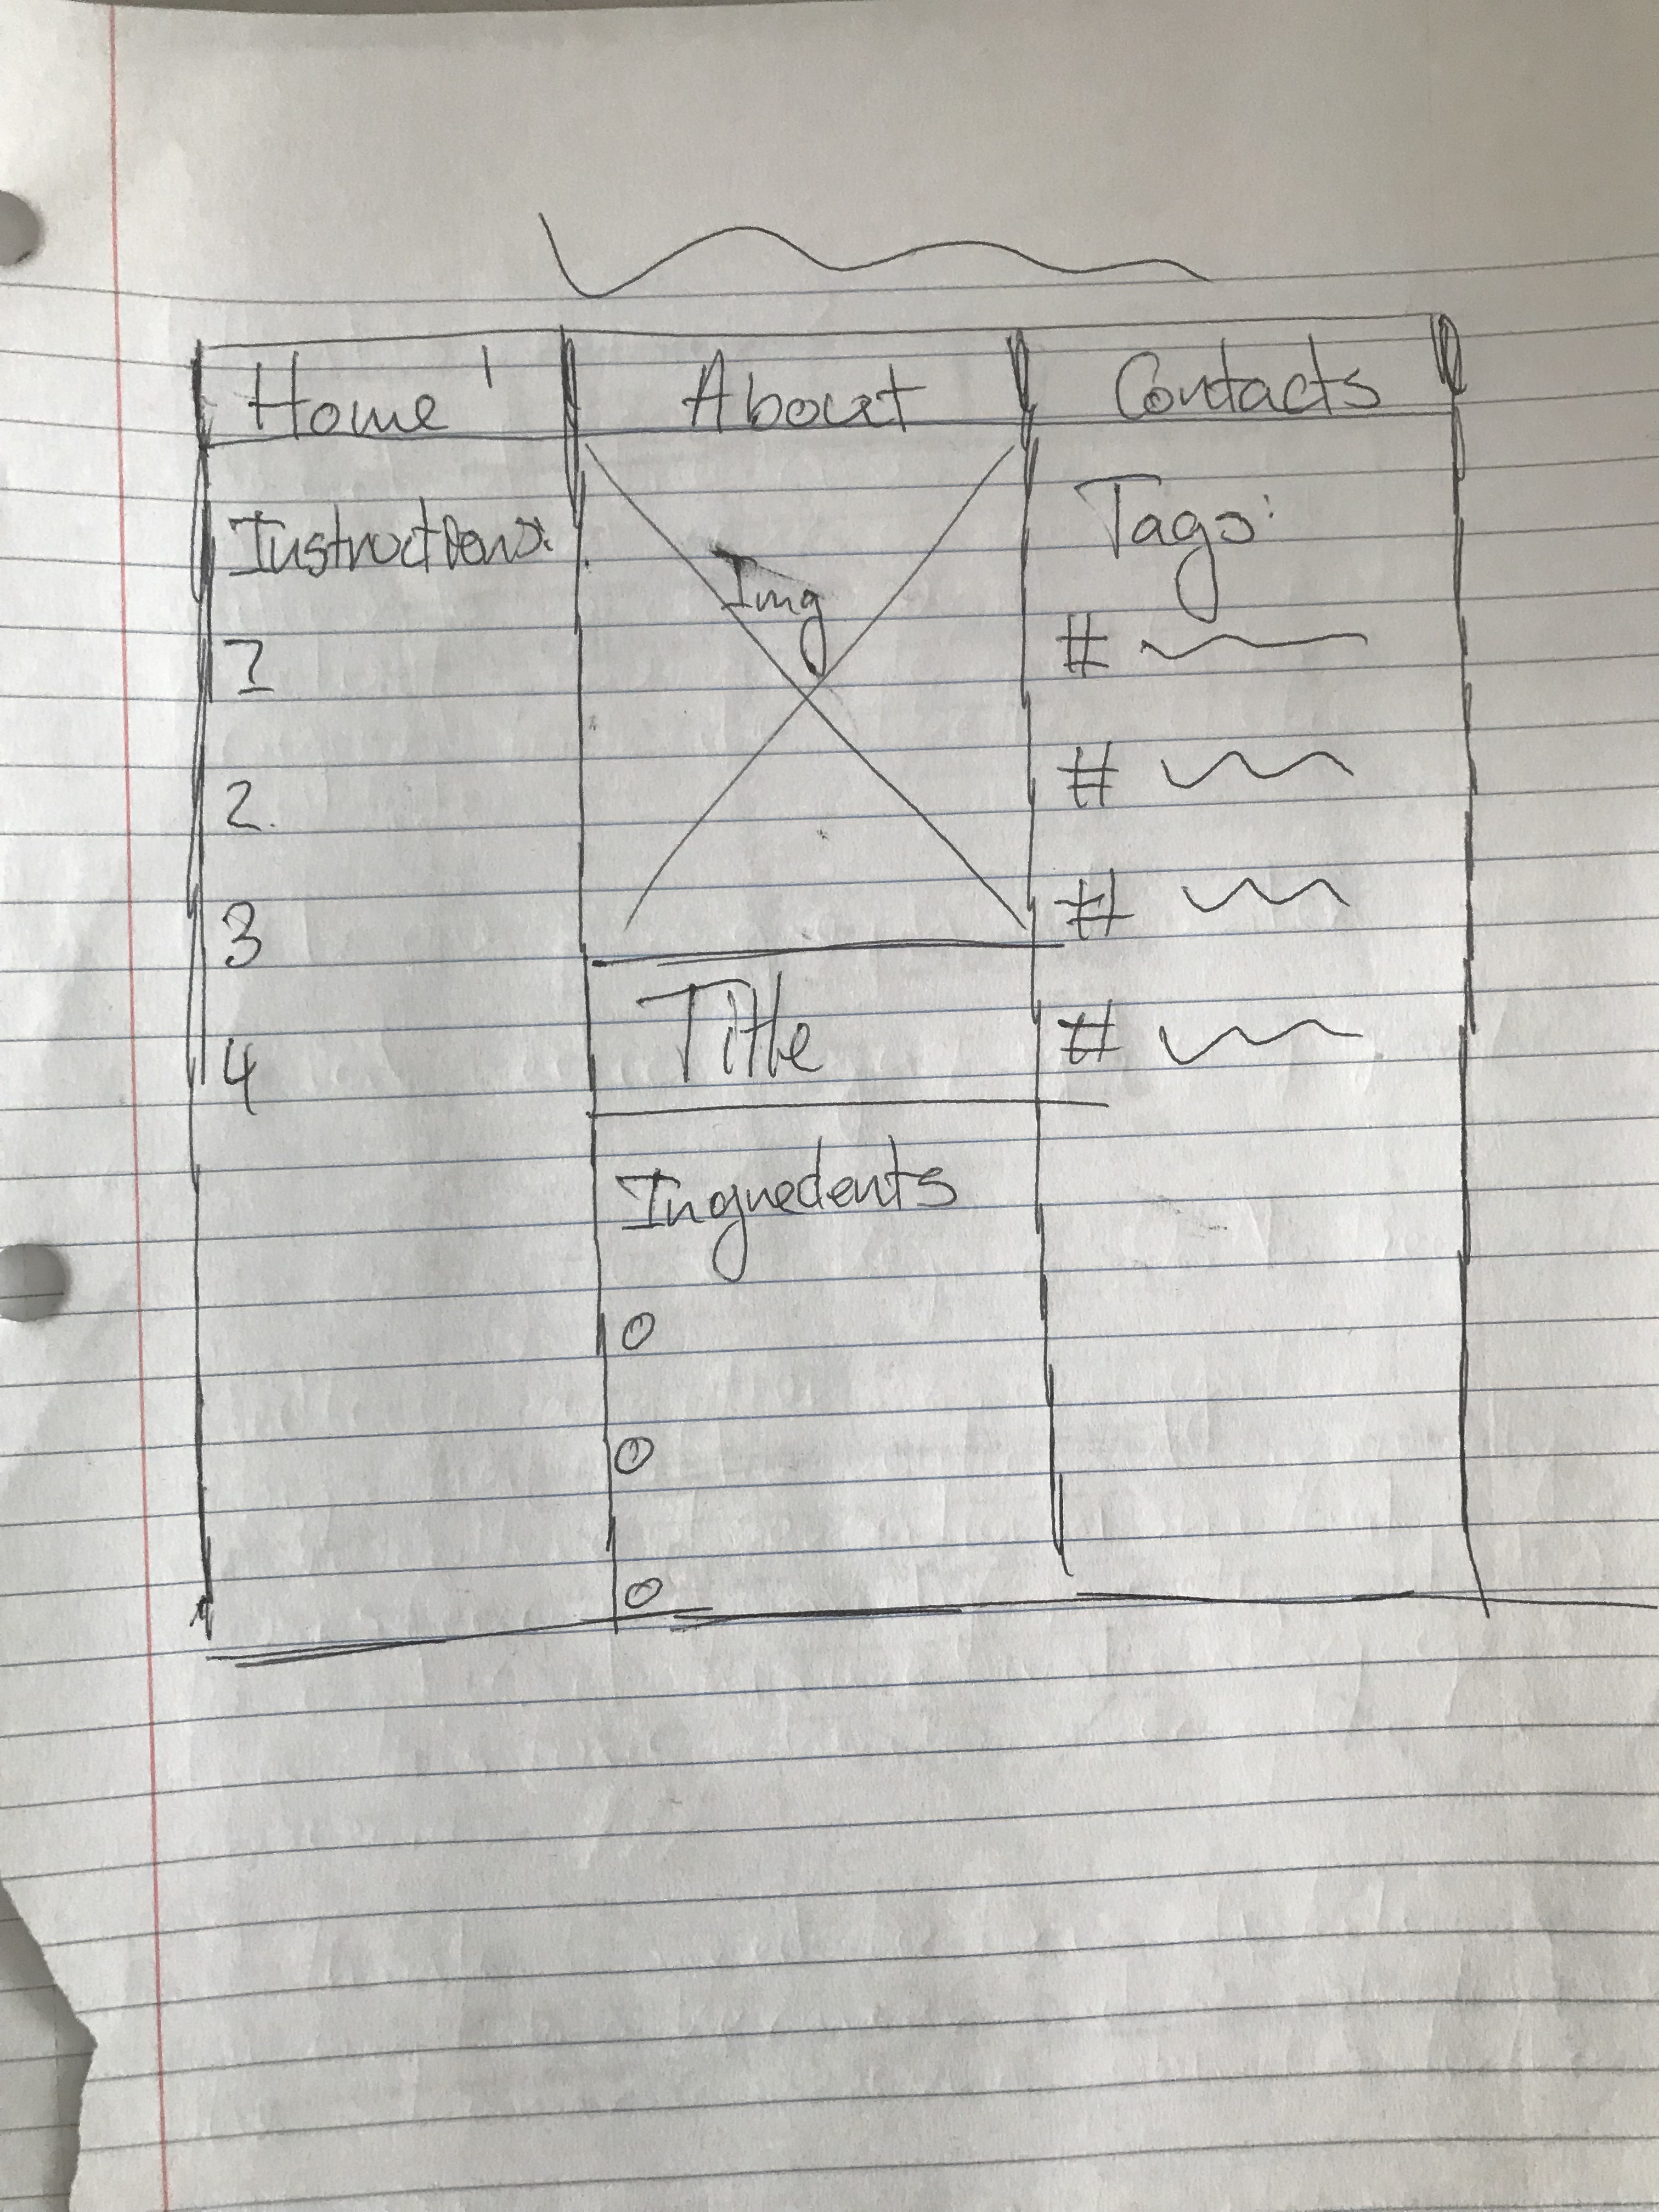 Home
About
Contacts
Instructions:
1
2.
3
4
Img
Title
Ingredents
Tags:
#
#
#
#